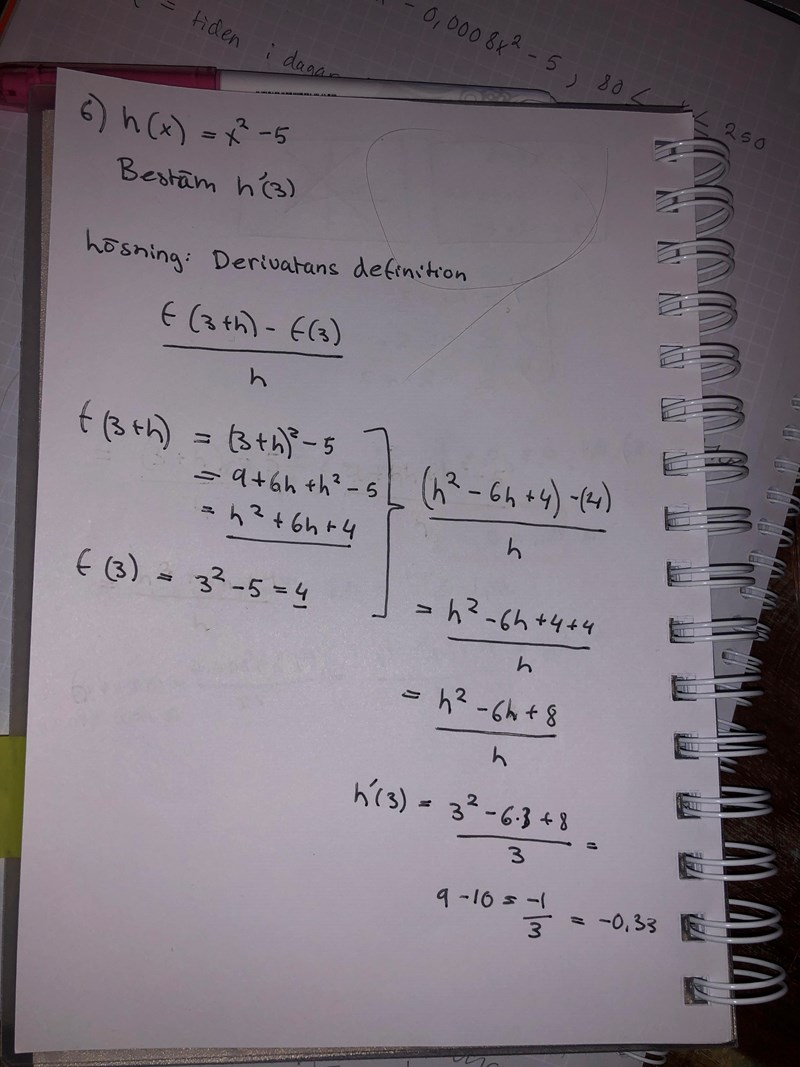 = tiden i dagar
- 0,0008x² - 5, 80 <
≤ 250
6) h(x) = x² - 5
Bestäm h'(3)
Lösning: Derivatans definition
f(3+h) - f(3)
h
f(3+h) = (3+h)² - 5
= 9+6h+h² - 5
= h² + 6h + 4
f(3) = 3² - 5 = 4
(h² - 6h + 4) - (4)
h
= h² - 6h + 4 + 4
h
= h² - 6h + 8
h
h'(3) = 3² - 6·3 + 8
3 =
9 - 10 = -1
3 = -0,33